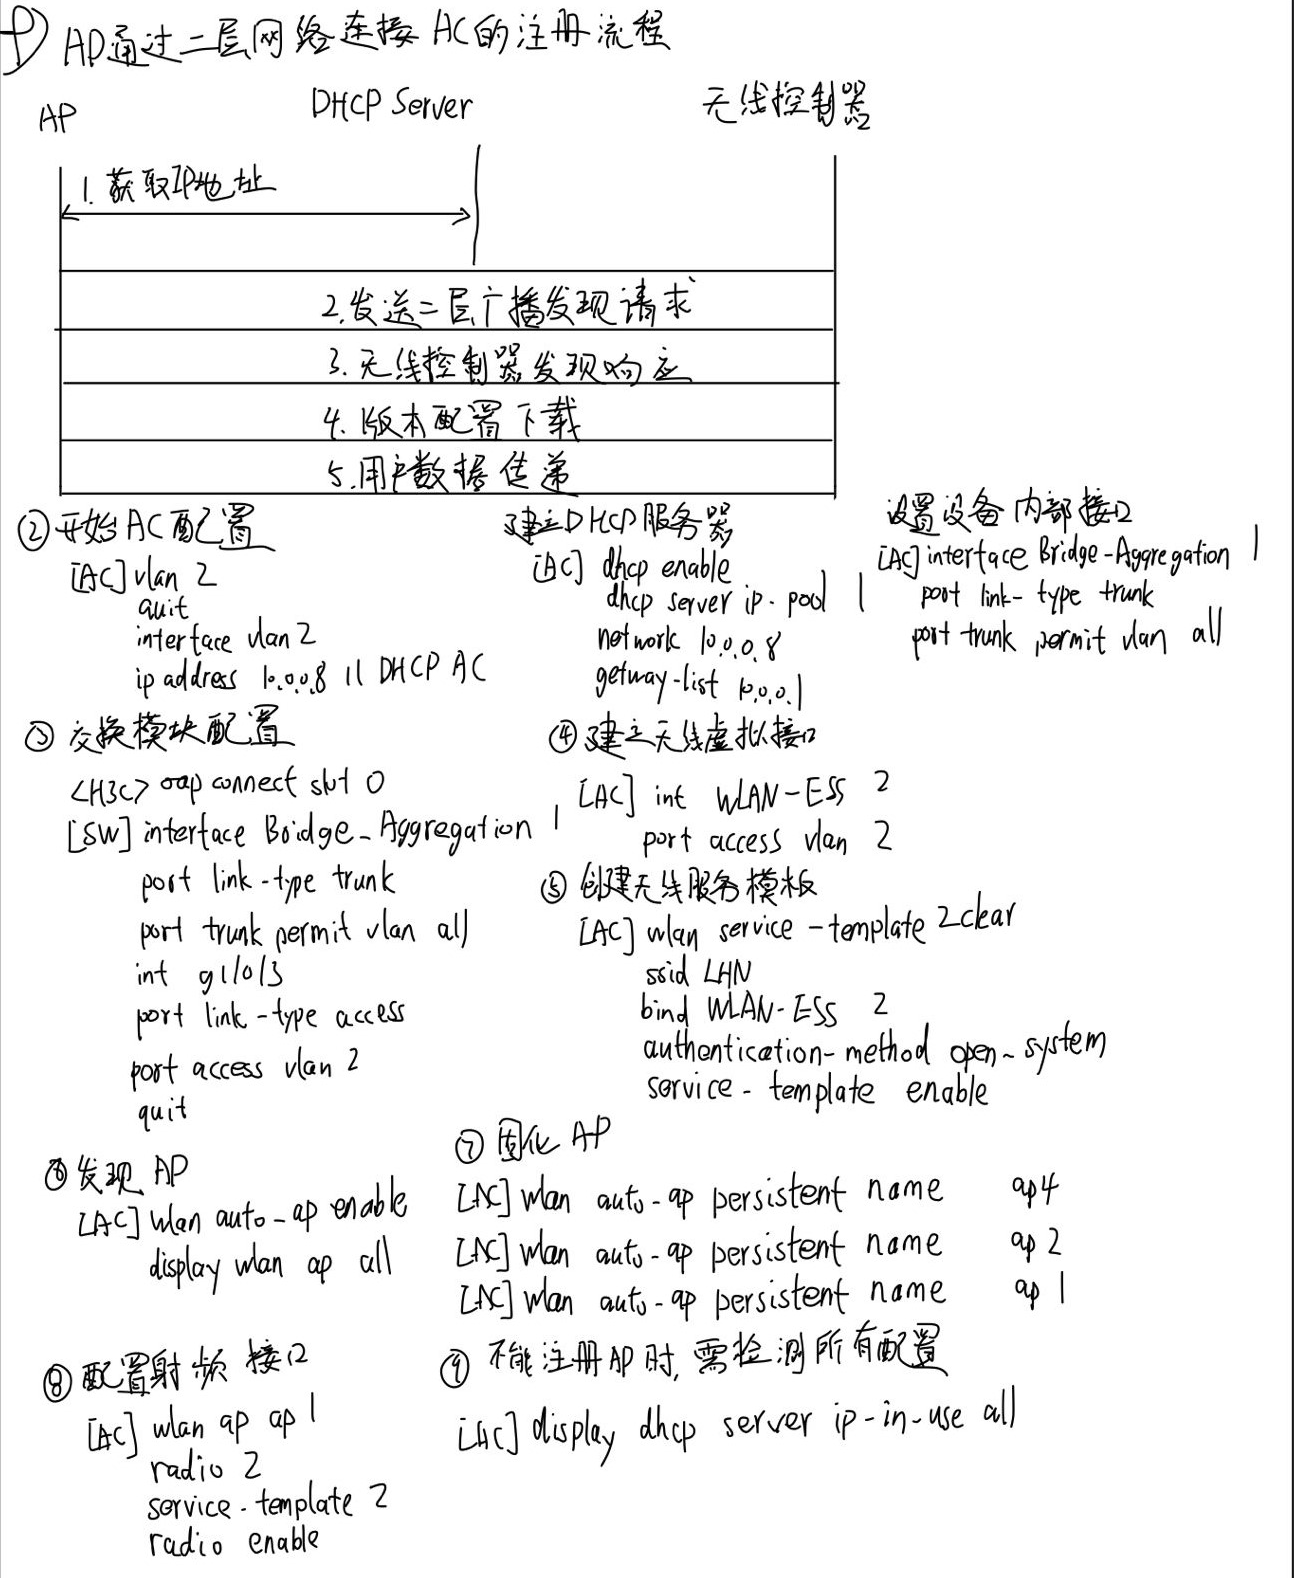 ① AP通过二层网络连接 AC的注册流程
AP
DHCP Server
无线控制器
1. 获取IP地址
2.发送二层广播发现请求
3.无线控制器发现响应
4.版本配置下载
5.用户数据传递
②开始AC配置
[AC] vlan 2
quit
interface vlan 2
ip address 10.0.0.8 11 DHCP AC
建立DHCP服务器
[AC] dhcp enable
dhcp server ip-pool 1
network 10.0.0.8
getway-list 10.0.0.1
设置设备内部接口
[AC] interface Bridge-Aggregation 1
port link-type trunk
port trunk permit vlan all
③ 交换模块配置
<H3C> oap connect slot 0
[SW] interface Bridge-Aggregation 1
port link-type trunk
port trunk permit vlan all
int g1/0/3
port link-type access
port access vlan 2
quit
④建立无线虚拟接口
[AC] int WLAN-ESS 2
port access vlan 2
⑤ 创建无线服务模板
[AC] wlan service-template 2 clear
ssid LHN
bind WLAN-ESS 2
authentication-method open-system
service-template enable
⑥发现 AP
[AC] wlan auto-ap enable
display wlan ap all
⑦ 固化 AP
[AC] wlan auto-ap persistent name ap4
[AC] wlan auto-ap persistent name ap 2
[AC] wlan auto-ap persistent name ap 1
⑧配置射频 接口
[AC] wlan ap ap 1
radio 2
service-template 2
radio enable
⑨ 不能注册AP时,需检测所有配置
[AC] display dhcp server ip-in-use all